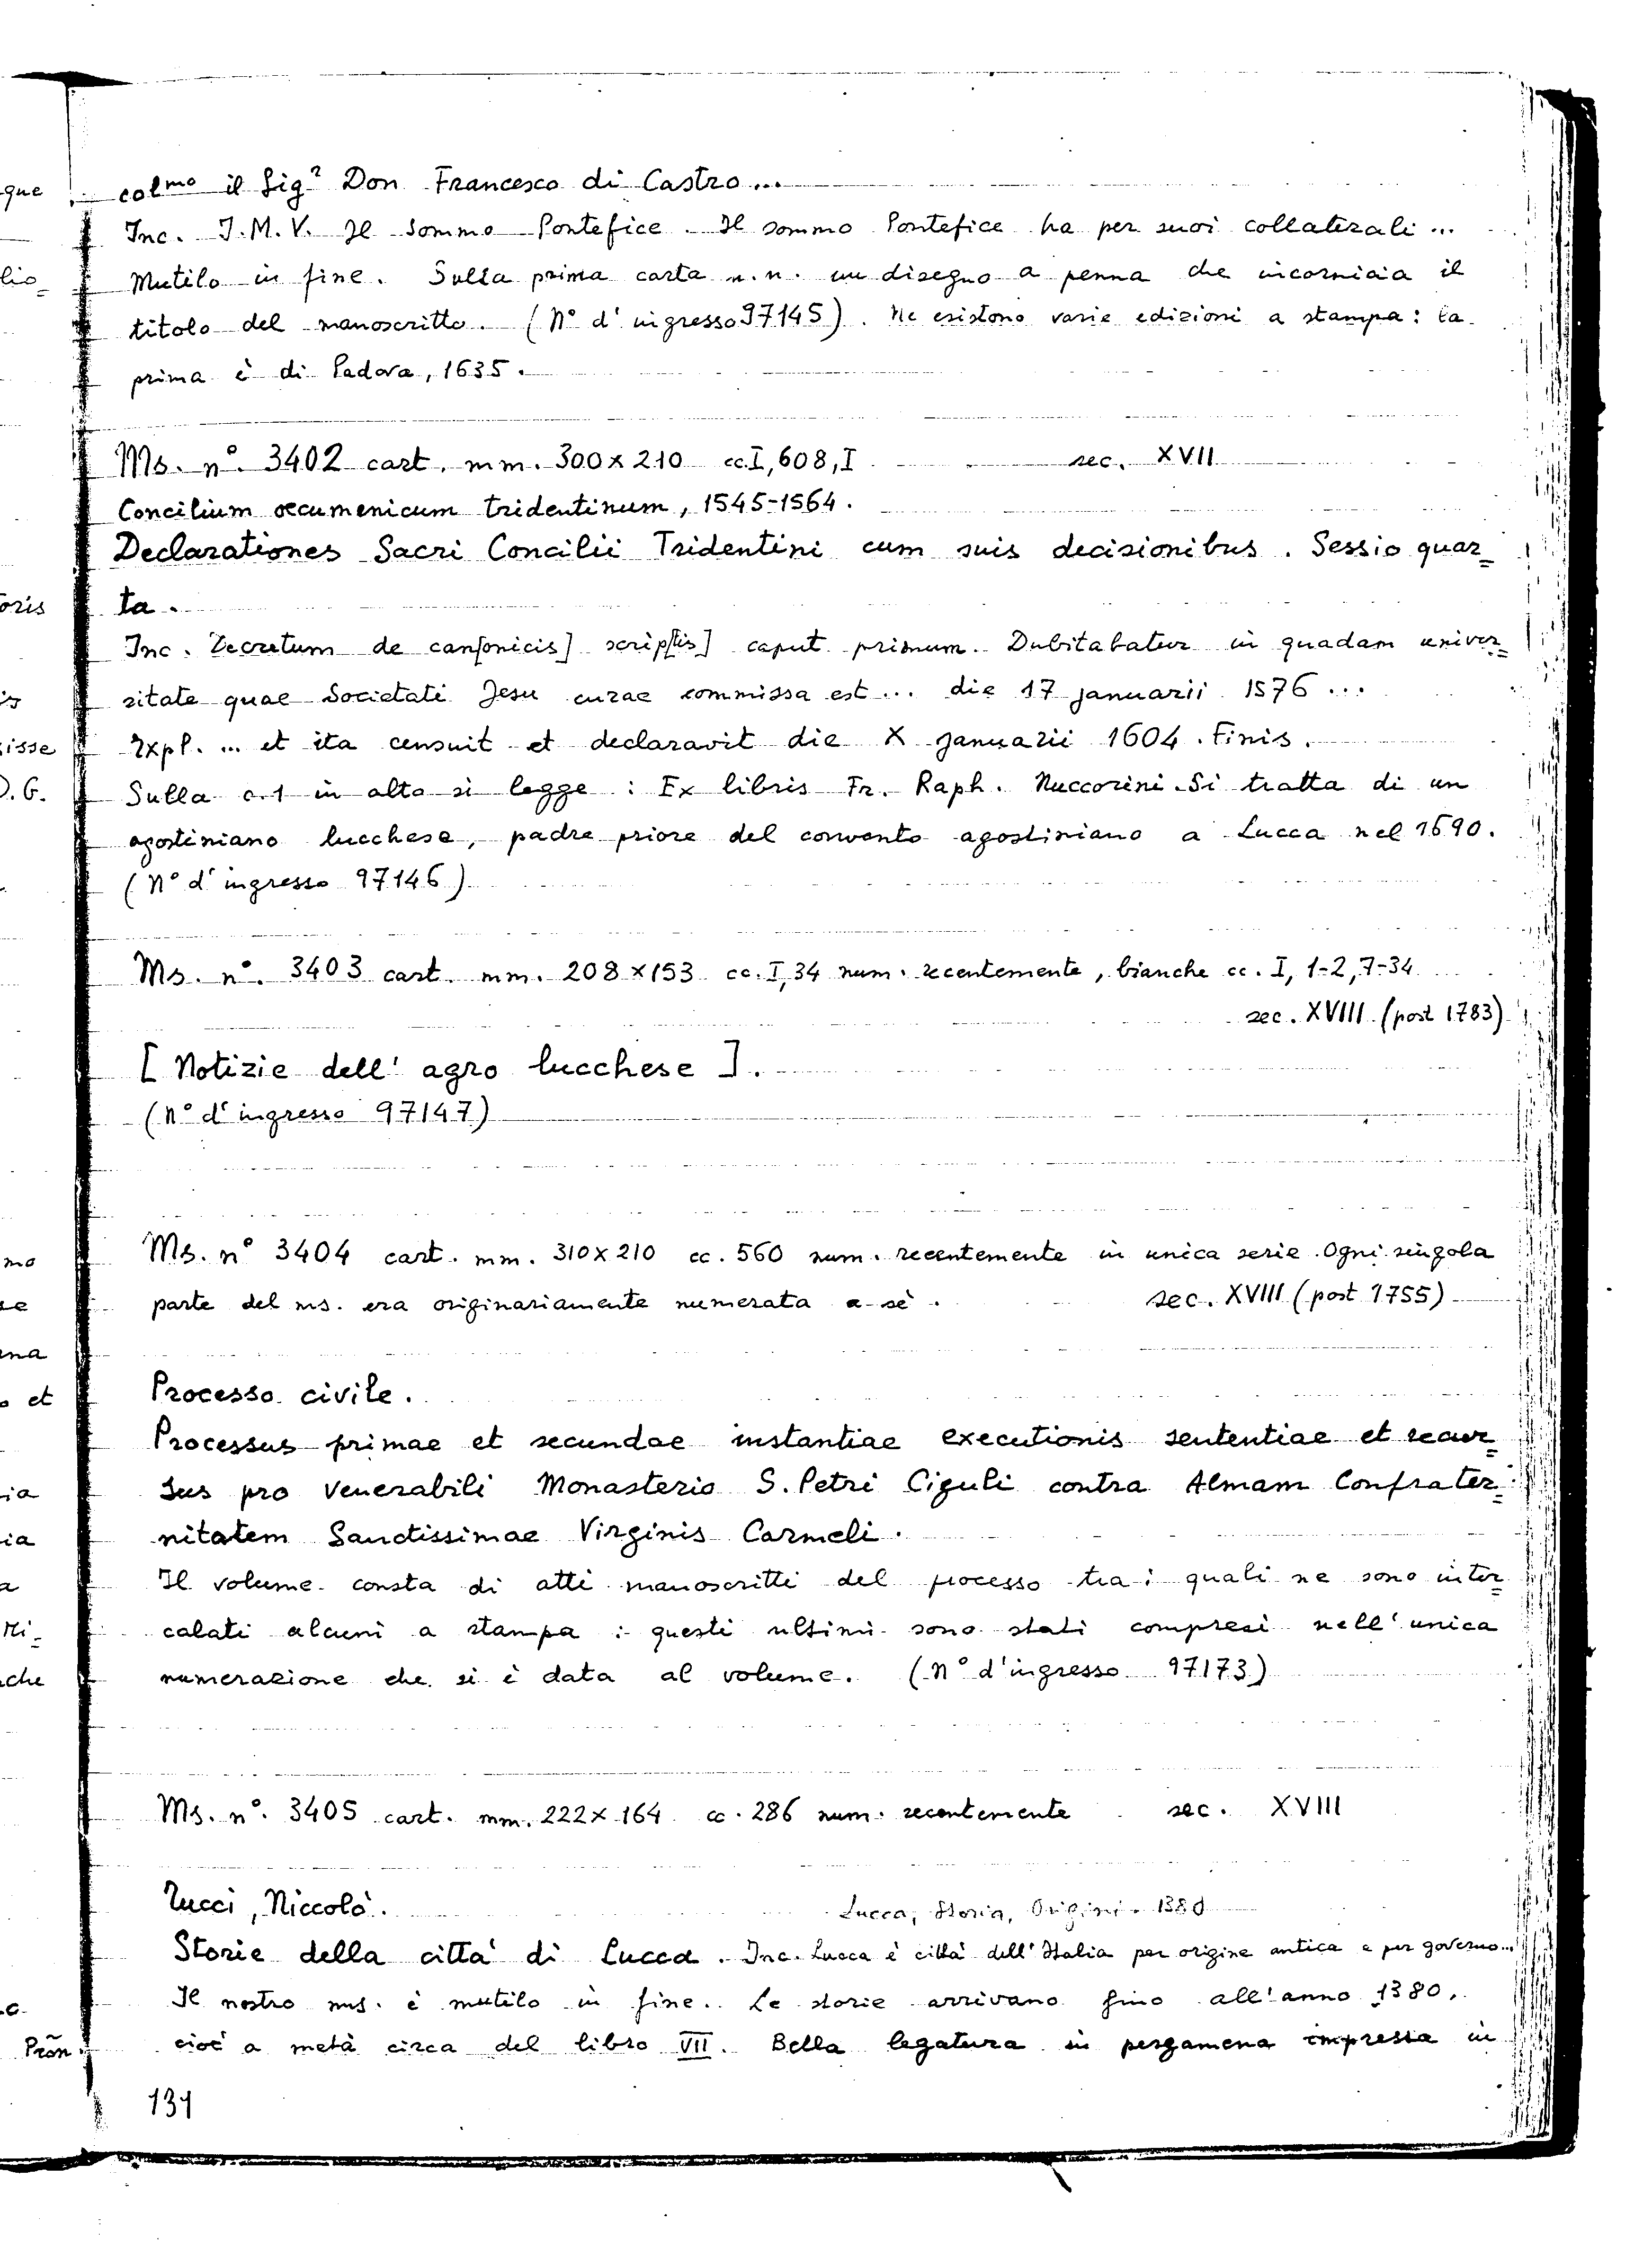 colmo il Sigr Don Francesco di Castro...
Inc. J.M.V. Il sommo Pontefice. Il sommo Pontefice ha per suoi collaterali...
Mutilo in fine. Sulla prima carta n.n. un disegno a penna che incornicia il
titolo del manoscritto. (N° d'ingresso 97145). Ne esistono varie edizioni a stampa: la
prima è di Padova, 1635.
Ms. n°. 3402 cart. mm. 300x210 cc. I, 608, I sec. XVII
Concilium oecumenicum tridentinum, 1545-1564.
Declarationes Sacri Concilii Tridentini cum suis decisionibus. Sessio quar=
ta.
Inc. Decretum de can[onicis] scrip[tis] caput primum. Dubitabatur in quadam univer=
sitate quae Societati Jesu curae commissa est... die 17 januarii 1576...
Expl. ... et ita censuit et declaravit die X januarii 1604. Finis.
Sulla c.1 in alto si legge: Ex libris Fr. Raph. Nuccorini. Si tratta di un
agostiniano lucchese, padre priore del convento agostiniano a Lucca nel 1690.
(N° d'ingresso 97146)
Ms. n°. 3403 cart. mm. 208x153 cc. I, 34 num. recentemente, bianche cc. I, 1-2, 7-34
sec. XVIII (post 1783)
[Notizie dell'agro lucchese].
(N° d'ingresso 97147)
Ms. n° 3404 cart. mm. 310x210 cc. 560 num. recentemente in unica serie. Ogni singola
parte del ms. era originariamente numerata a sè. sec. XVIII (post 1755)
Processo civile.
Processus primae et secundae instantiae executionis sententiae et recur=
sus pro Venerabili Monasterio S. Petri Ciguli contra Almam Confrater=
nitatem Sanctissimae Virginis Carmeli.
Il volume consta di atti manoscritti del processo tra i quali ne sono inter=
calati alcuni a stampa: questi ultimi sono stati compresi nell'unica
numerazione che si è data al volume. (N° d'ingresso 97173)
Ms. n°. 3405 cart. mm. 222x164 cc. 286 num. recentemente sec. XVIII
Tucci, Niccolò. Lucca, Storia, Origini - 1380
Storie della città di Lucca. Inc. Lucca è città dell'Italia per origine antica e per governo...
Il nostro ms. è mutilo in fine. Le storie arrivano fino all'anno 1380,
cioè a metà circa del libro VII. Bella legatura in pergamena impressa in
131